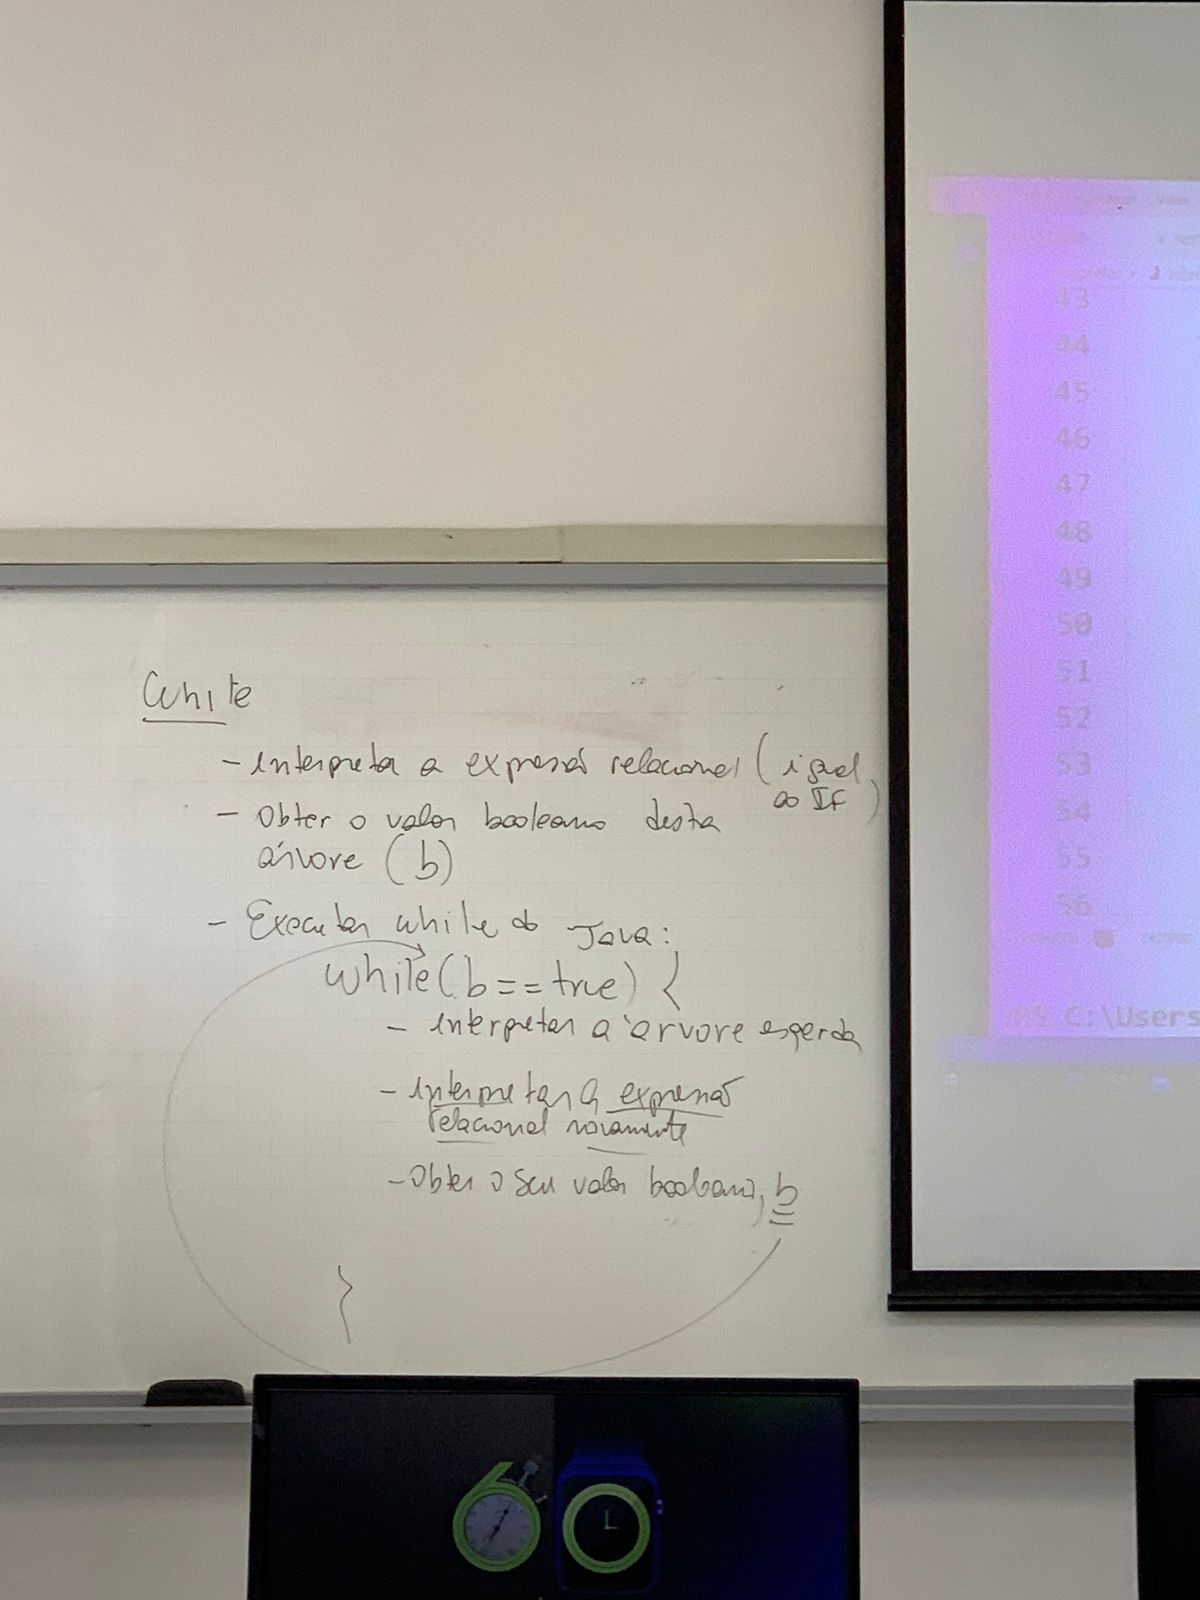 While
- Interpreta a expressão relacional (igual
ao IF)
- Obter o valor booleano desta
árvore (b)
- Executar while do Java:
while(b==true) {
- Interpretar a árvore esquerda
- Interpretar a expressão
relacional novamente
- Obter o seu valor booleano, b
}
43
44
45
46
47
48
49
50
51
52
53
54
55
56
PS C:\Users